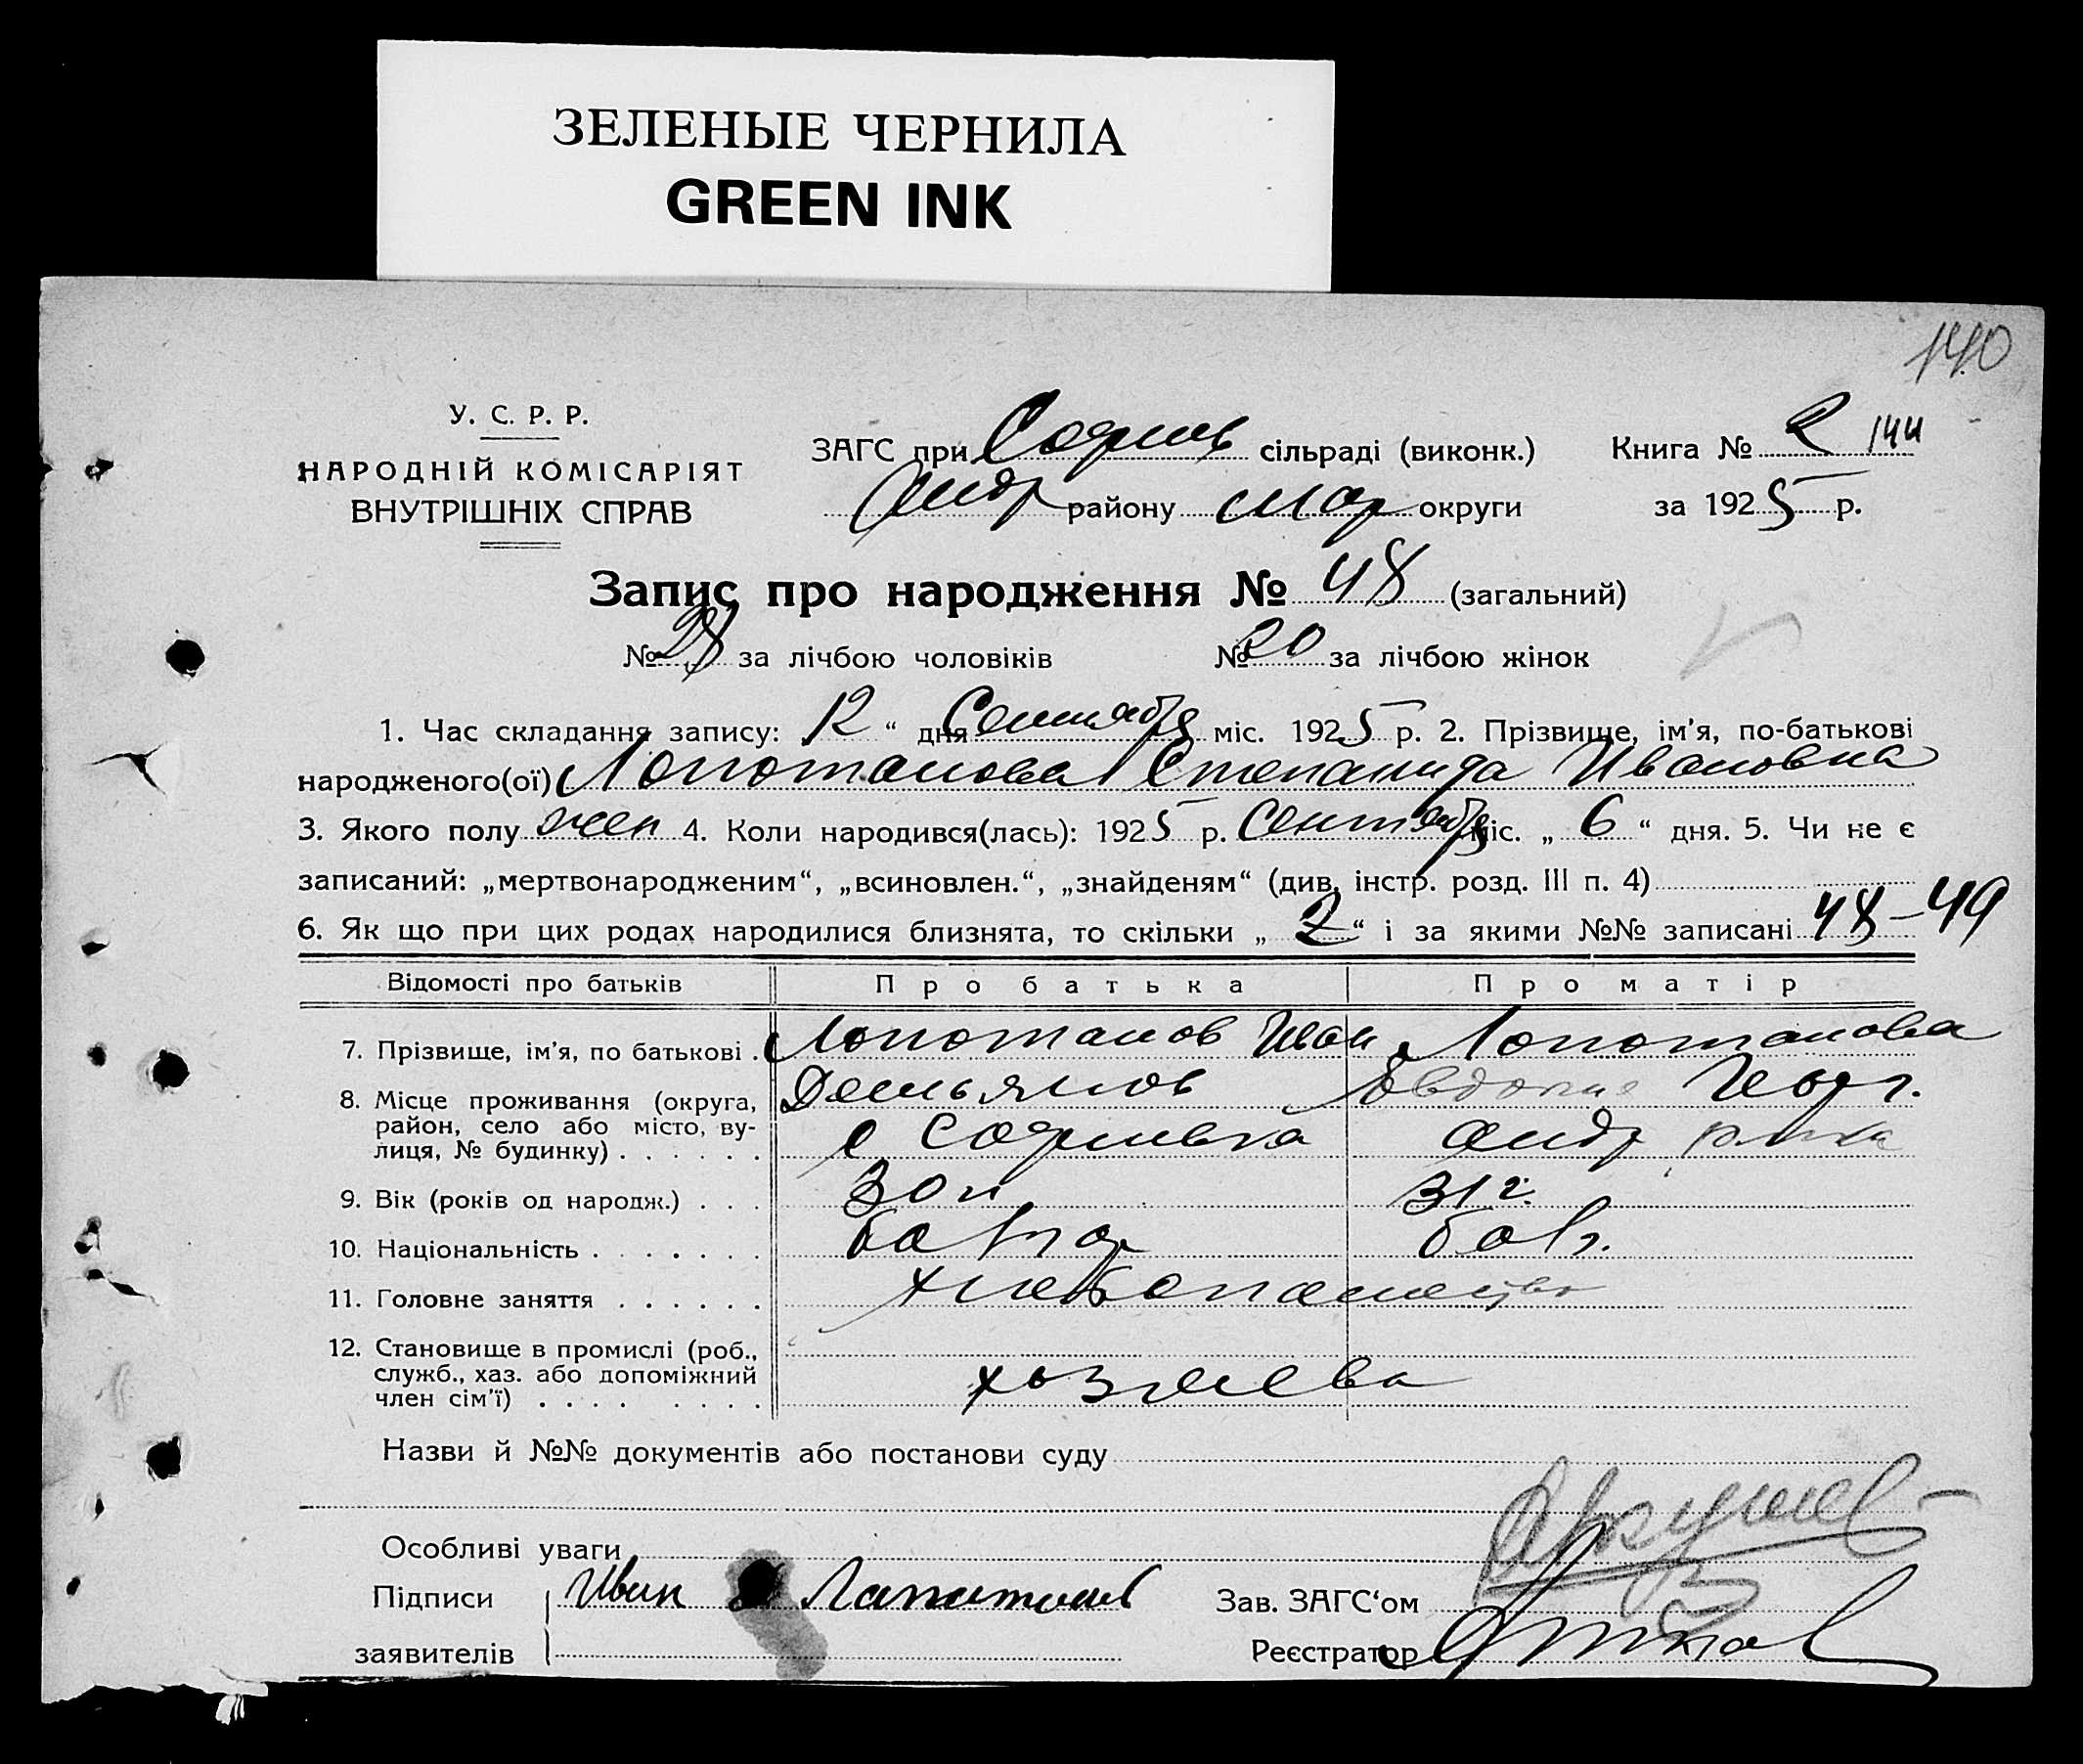 ЗЕЛЕНЫЕ ЧЕРНИЛА
GREEN INK
140
У. С. Р. Р.
НАРОДНІЙ КОМІСАРІЯТ
ВНУТРІШНІХ СПРАВ
ЗАГС при Софиев сільраді (виконк.)
Андр району Мар округи
Книга № 2 144
за 1925 р.
Запис про народження № 48 (загальний)
№ 28 за лічбою чоловіків № 20 за лічбою жінок
1. Час складання запису: 12 “ дня Сентября міс. 1925 р. 2. Прізвище, ім’я, по-батькові
народженого(ої) Лопотанова Степанида Ивановна
3. Якого полу жен 4. Коли народився(лась): 1925 р. Сентября міс. „ 6 “ дня. 5. Чи не є
записаний: „мертвонародженим“, „всиновлен.“, „знайденям“ (див. інстр. розд. III п. 4)
6. Як що при цих родах народилися близнята, то скільки „ 2 “ і за якими №№ записані 48-49
Відомості про батьків Про батька Про матір
7. Прізвище, ім’я, по батькові . Лопотанов Иван Лопотанова
Демьянов Евдокия Геор г.
8. Місце проживання (округа, район, село або місто, ву-
лиця, № будинку) . . . . . . с Софиевка Андр р-на
9. Вік (років од народж.) . . . 30 л 31 г.
10. Національність . . . . . . . болгар болг.
11. Головне заняття . . . . . . хлебопашество
12. Становище в промислі (роб.,
служб., хаз. або допоміжний
член сім’ї) . . . . . . . . хозяева
Назви й №№ документів або постанови суду
Особливі уваги
Підписи Иван Лапатанов Зав. ЗАГС‘ом
заявителів Реєстратор